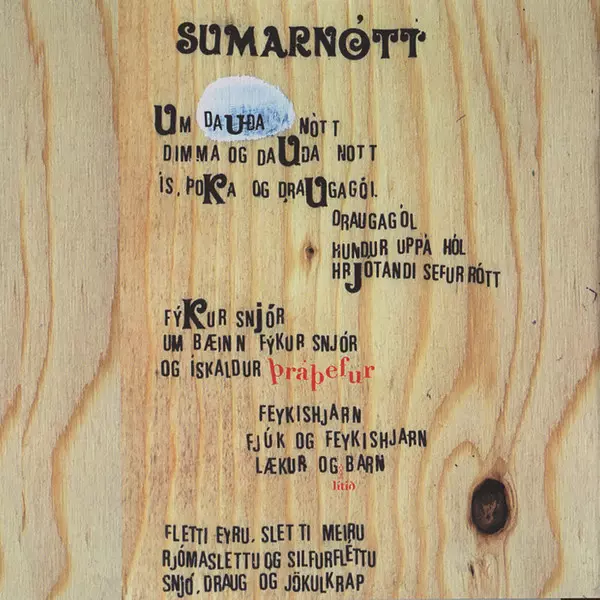 SUMARNÓTT
UM DAUÐA NÓTT
DIMMA OG DAUÐA NOTT
ÍS, ÞOKA OG DRAUGAGÓL.
DRAUGAGÓL
HUNDUR UPPÁ HÓL
HRJÓTANDI SEFUR RÓTT
FÝKUR SNJÓR
UM BÆINN FÝKUR SNJÓR
OG ÍSKALDUR þráþefur
FEYKISHJARN
FJÚK OG FEYKISHJARN
LÆKUR OG BARN
lítið
FLETTI EYRU, SLETTI MEIRU
RJÓMASLETTU OG SILFURFLÉTTU
SNJÓ, DRAUG OG JÖKULKRAP